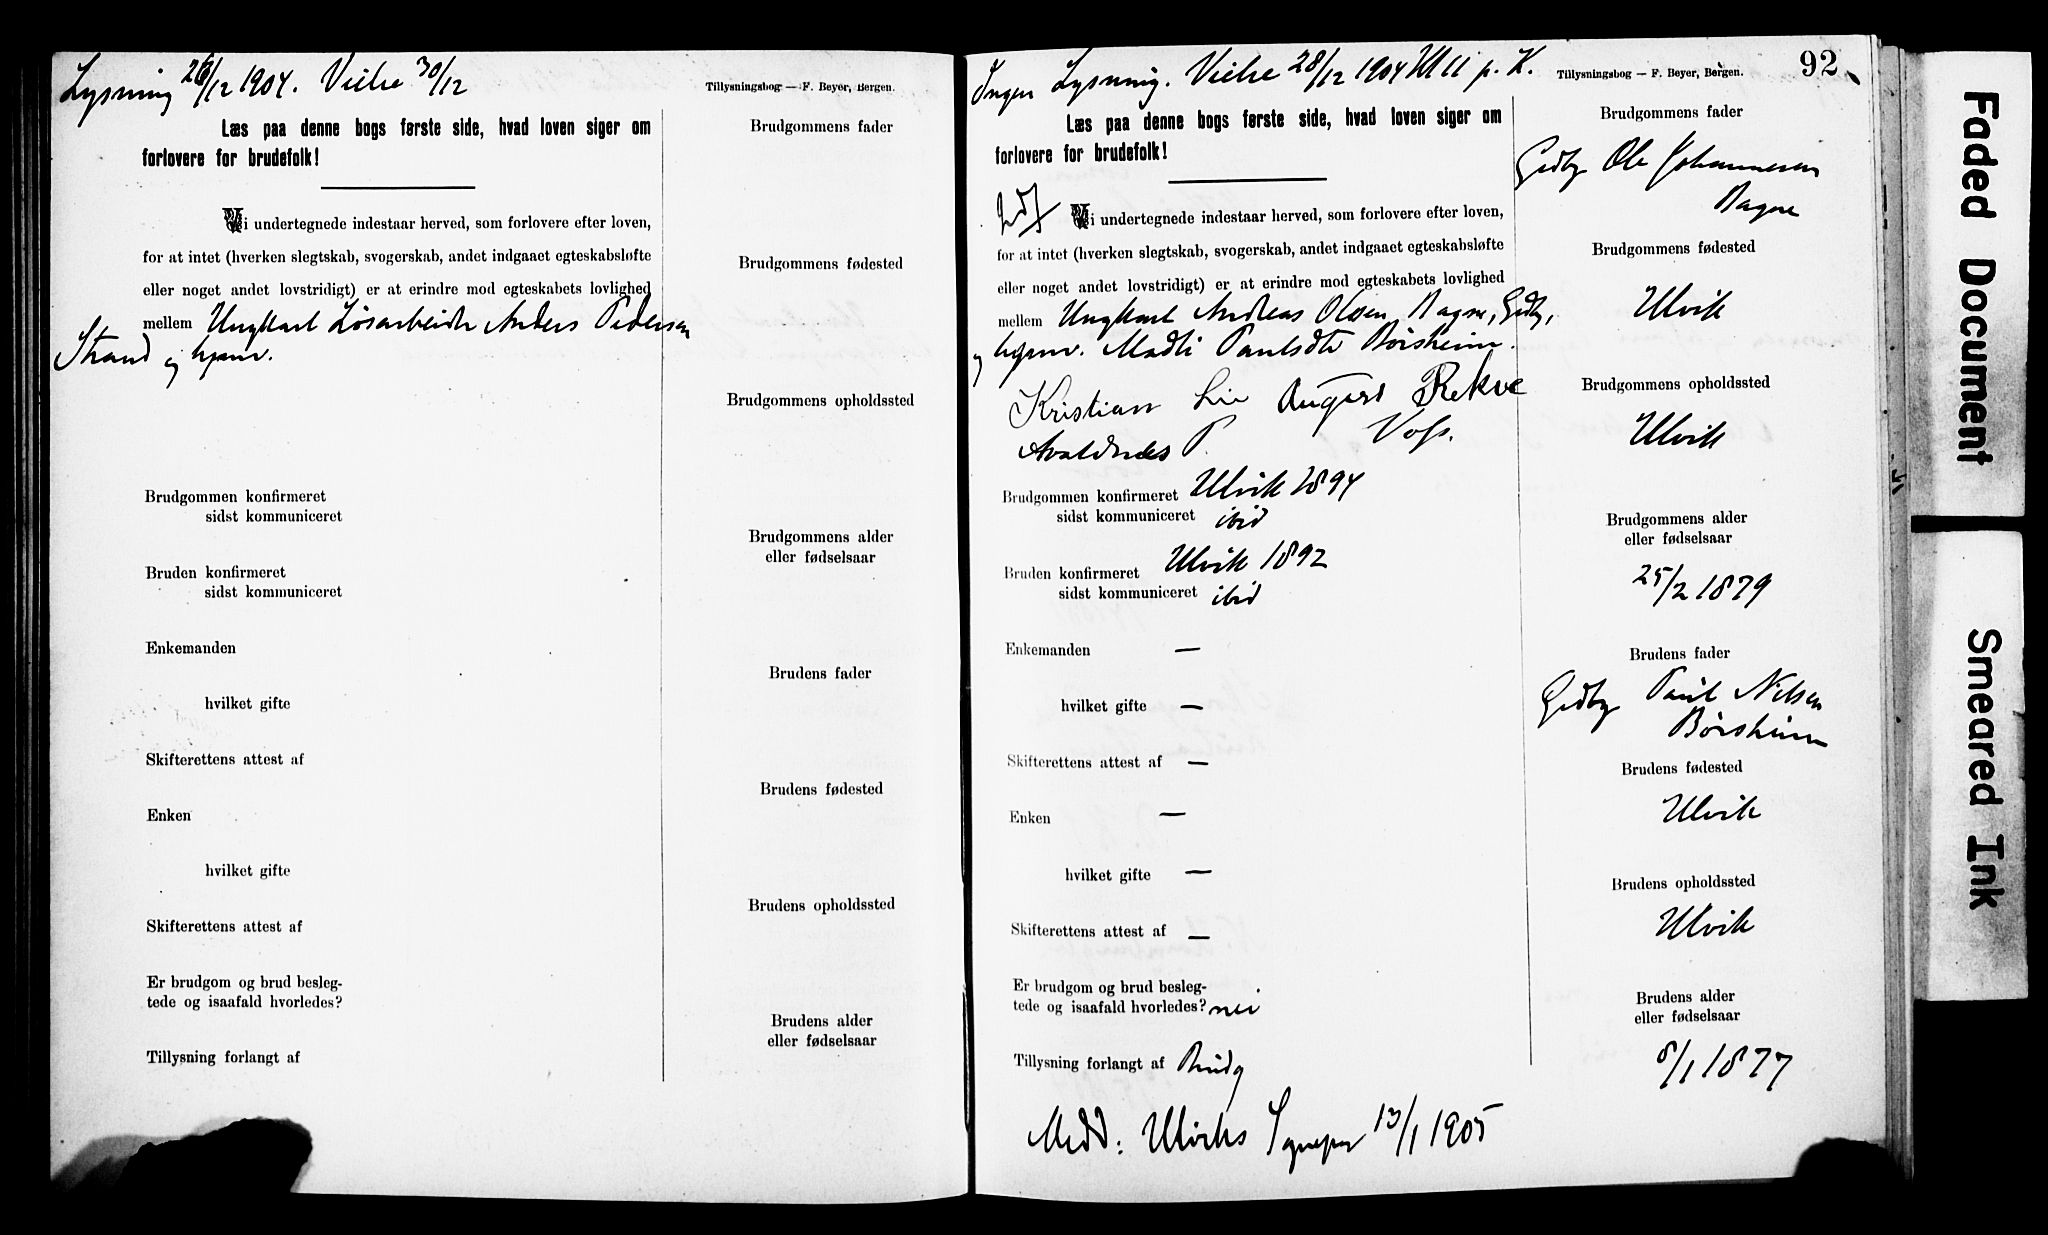 Lysning 26/12 1904. Vielse 30/12
Tillysningsbog — F. Beyer, Bergen.
Læs paa denne bogs første side, hvad loven siger om
forlovere for brudefolk!
Vi undertegnede indestaar herved, som forlovere efter loven,
for at intet (hverken slegtskab, svogerskab, andet indgaaet egteskabsløfte
eller noget andet lovstridigt) er at erindre mod egteskabets lovlighed
mellem Ungkarl Løsarbeider Anders Pedersen
Strand og
Brudgommen konfirmeret
sidst kommuniceret
Bruden konfirmeret
sidst kommuniceret
Enkemanden
hvilket gifte
Skifterettens attest af
Enken
hvilket gifte
Skifterettens attest af
Er brudgom og brud besleg-
tede og isaafald hvorledes?
Tillysning forlangt af
Brudgommens fader
Brudgommens fødested
Brudgommens opholdssted
Brudgommens alder
eller fødselsaar
Brudens fader
Brudens fødested
Brudens opholdssted
Brudens alder
eller fødselsaar
Ingen Lysning. Vielse 28/12 1904 Kl 11 p. K.
Tillysningsbog — F. Beyer, Bergen.
92
Læs paa denne bogs første side, hvad loven siger om
forlovere for brudefolk!
Vi undertegnede indestaar herved, som forlovere efter loven,
for at intet (hverken slegtskab, svogerskab, andet indgaaet egteskabsløfte
eller noget andet lovstridigt) er at erindre mod egteskabets lovlighed
mellem Ungkarl Andreas Olsen Bagne, Gdby,
og Madli Paulsdtr Børsheim.
Kristian Lie August Rekve
Avaldsnes P. Voss.
Brudgommen konfirmeret Ulvik 1894
sidst kommuniceret ibid
Bruden konfirmeret Ulvik 1892
sidst kommuniceret ibid
Enkemanden —
hvilket gifte —
Skifterettens attest af —
Enken —
hvilket gifte —
Skifterettens attest af —
Er brudgom og brud besleg-
tede og isaafald hvorledes? nei
Tillysning forlangt af Brudg
Medd. Ulviks Sognepr 13/1 1905
Brudgommens fader
Gdby Ole Johannesen
Bagne
Brudgommens fødested
Ulvik
Brudgommens opholdssted
Ulvik
Brudgommens alder
eller fødselsaar
25/2 1879
Brudens fader
Gdby Paul Nilsen
Børsheim
Brudens fødested
Ulvik
Brudens opholdssted
Ulvik
Brudens alder
eller fødselsaar
8/1 1877
Faded Document
Smeared Ink